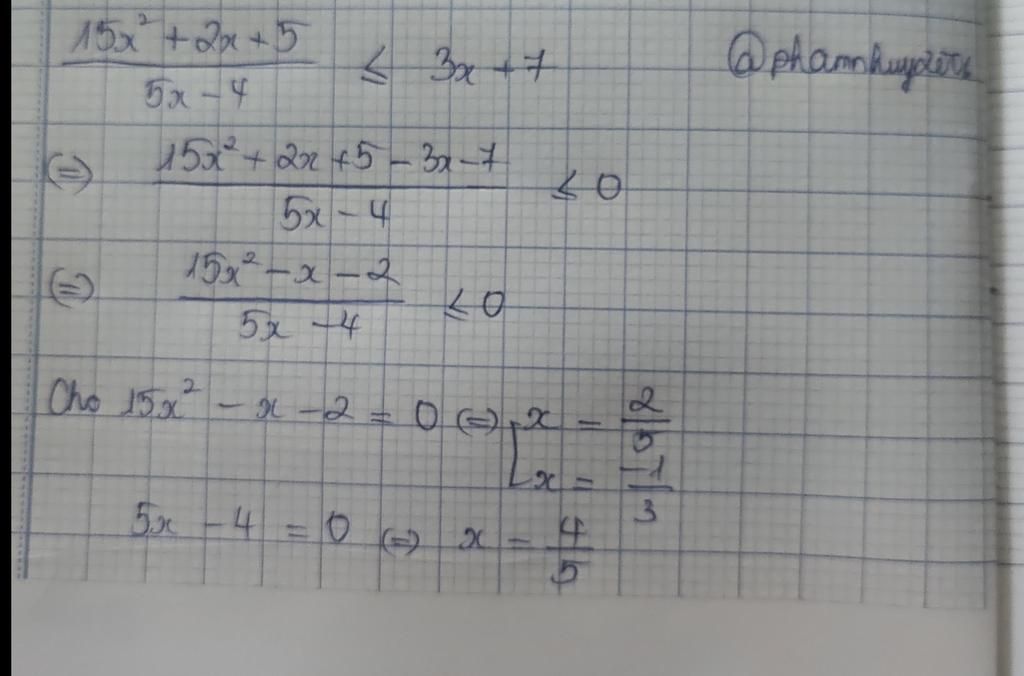 (15x² + 2x + 5)/(5x - 4) ≤ 3x + 7
(=) (15x² + 2x + 5 - 3x - 7)/(5x - 4) ≤ 0
(=) (15x² - x - 2)/(5x - 4) ≤ 0
Cho 15x² - x - 2 = 0 (=) [x = 2/5
x = -1/3
5x - 4 = 0 (=) x = 4/5